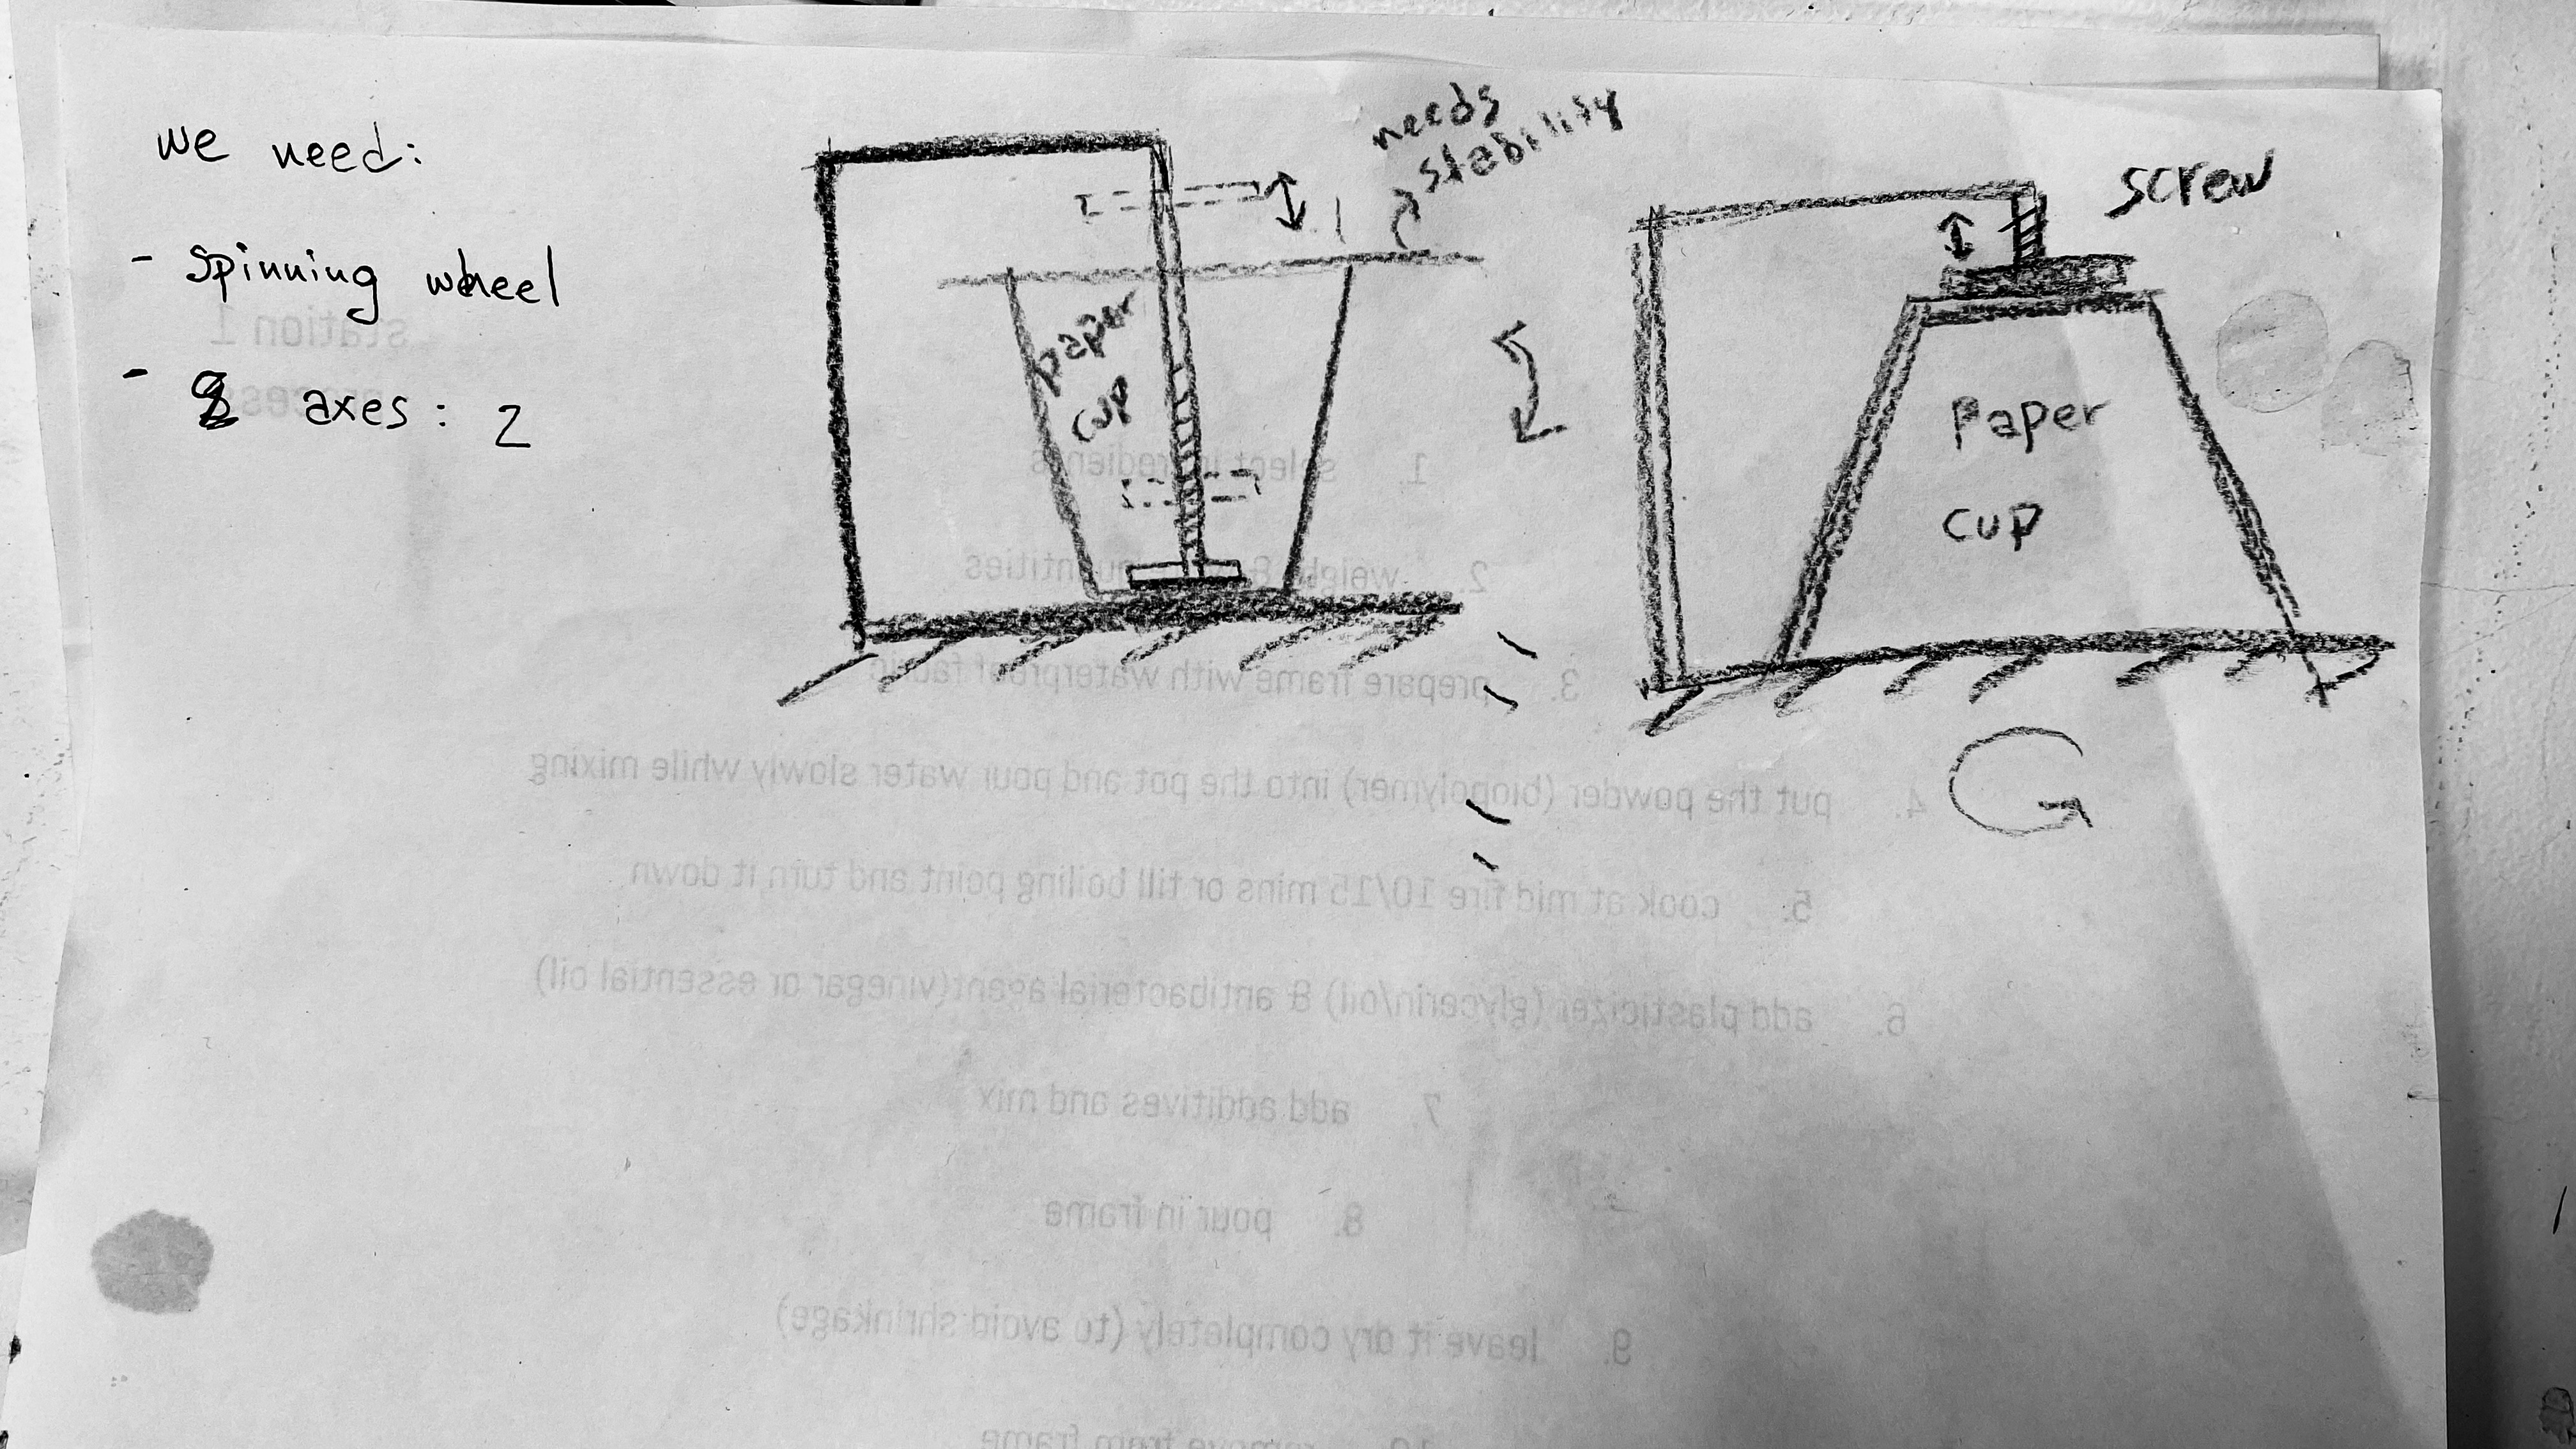 we need:
- Spinning wheel
- axes: 2
needs
stability
paper
cup
screw
Paper
cup
station 1
process
1. select ingredients
2. weight & quantities
3. prepare frame with waterproof fabric
4. put the powder (biopolymer) into the pot and pour water slowly while mixing
5. cook at mid fire 10/15 mins or till boiling point and turn it down
6. add plasticizer (glycerin/oil) & antibacterial agent(vinegar or essential oil)
7. add additives and mix
8. pour in frame
9. leave it dry completely (to avoid shrinkage)
10. remove from frame